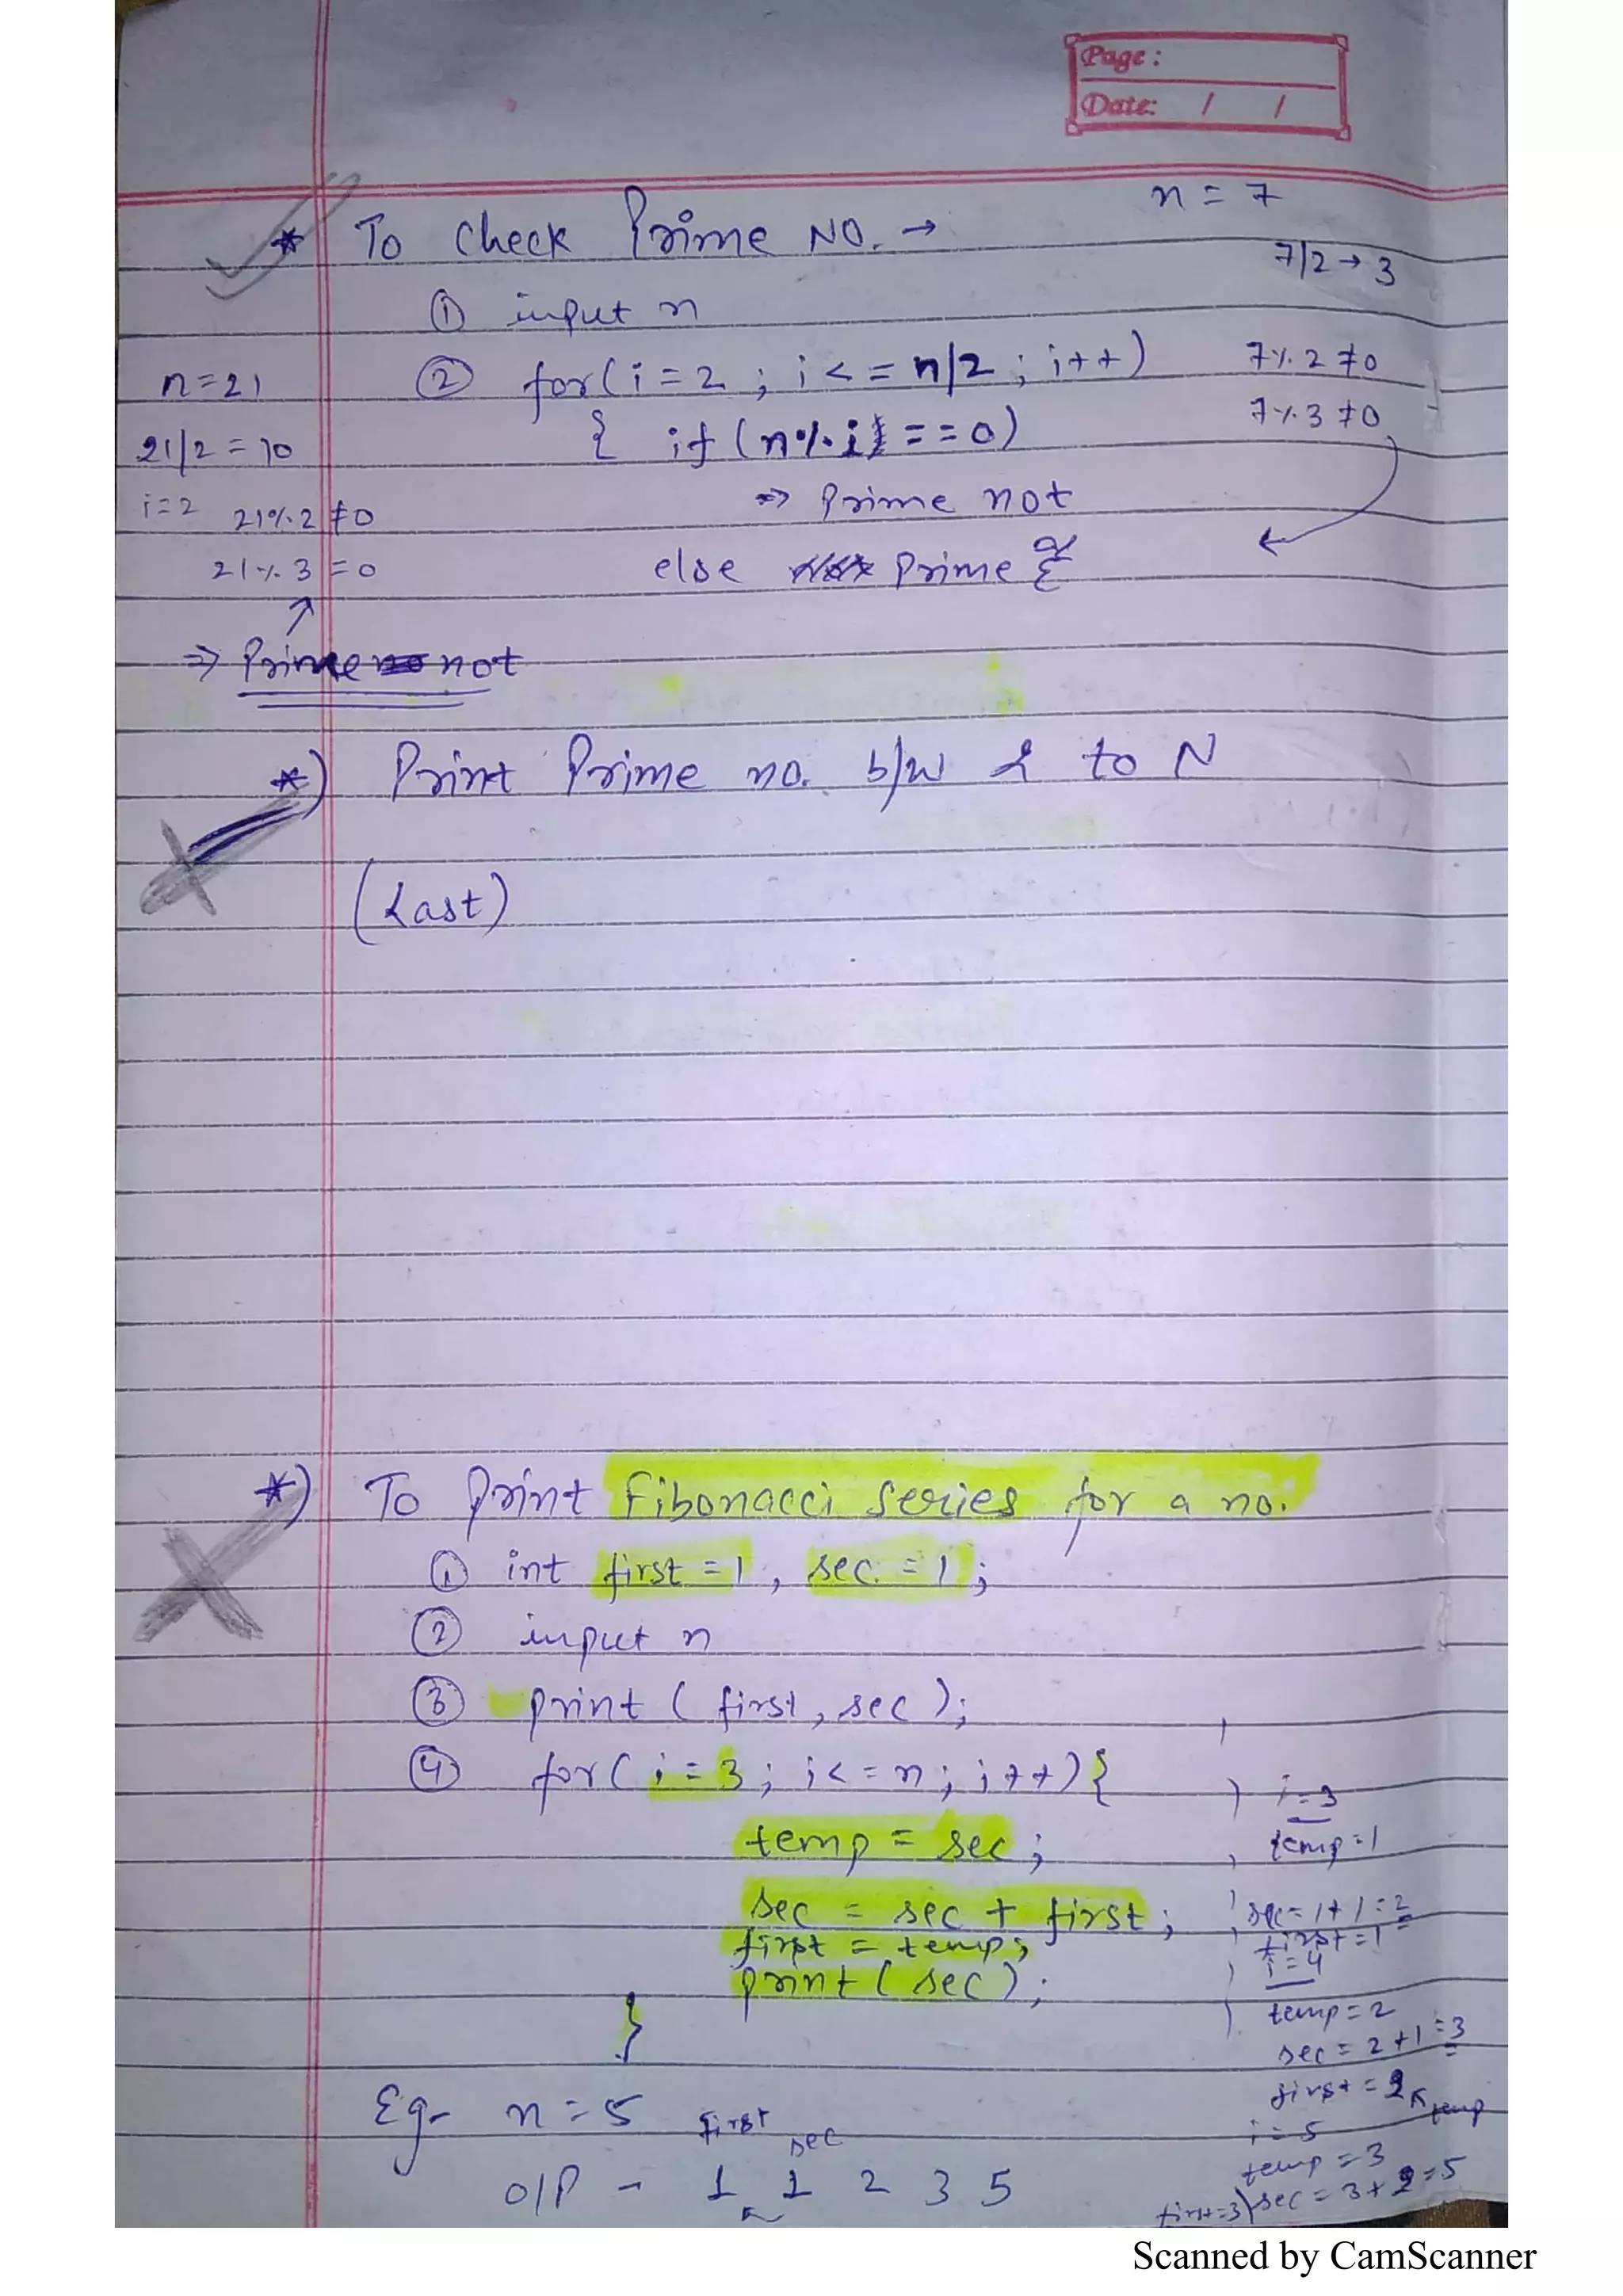 Page :
Date: / /
n = 7
* To Check Prime NO. →
7/2 → 3
① input n
② for(i = 2 ; i < = n/2 ; i++)
7 % 2 ≠ 0
n = 21
{ if (n % i == 0)
7 % 3 ≠ 0
21/2 = 10
⇒ Prime not
i = 2 21 % 2 ≠ 0
else Prime
21 % 3 = 0
⇒ Prime not
*) Print Prime no. b/w 1 to N
(Last)
*) To Print Fibonacci Series for a no.
① int first = 1 , sec = 1 ;
② input n
③ print ( first , sec ) ;
④ for( i = 3 ; i < = n ; i ++ ) {
i = 3
temp = sec ;
temp = 1
sec = sec + first ;
sec = 1 + 1 = 2
first = temp ;
first = 1
print ( sec ) ;
i = 4
temp = 2
}
sec = 2 + 1 = 3
first = 2 temp
Eg- n = 5
i = 5
first sec
temp = 3
O/P - 1 1 2 3 5
first = 3 sec = 3 + 2 = 5
Scanned by CamScanner